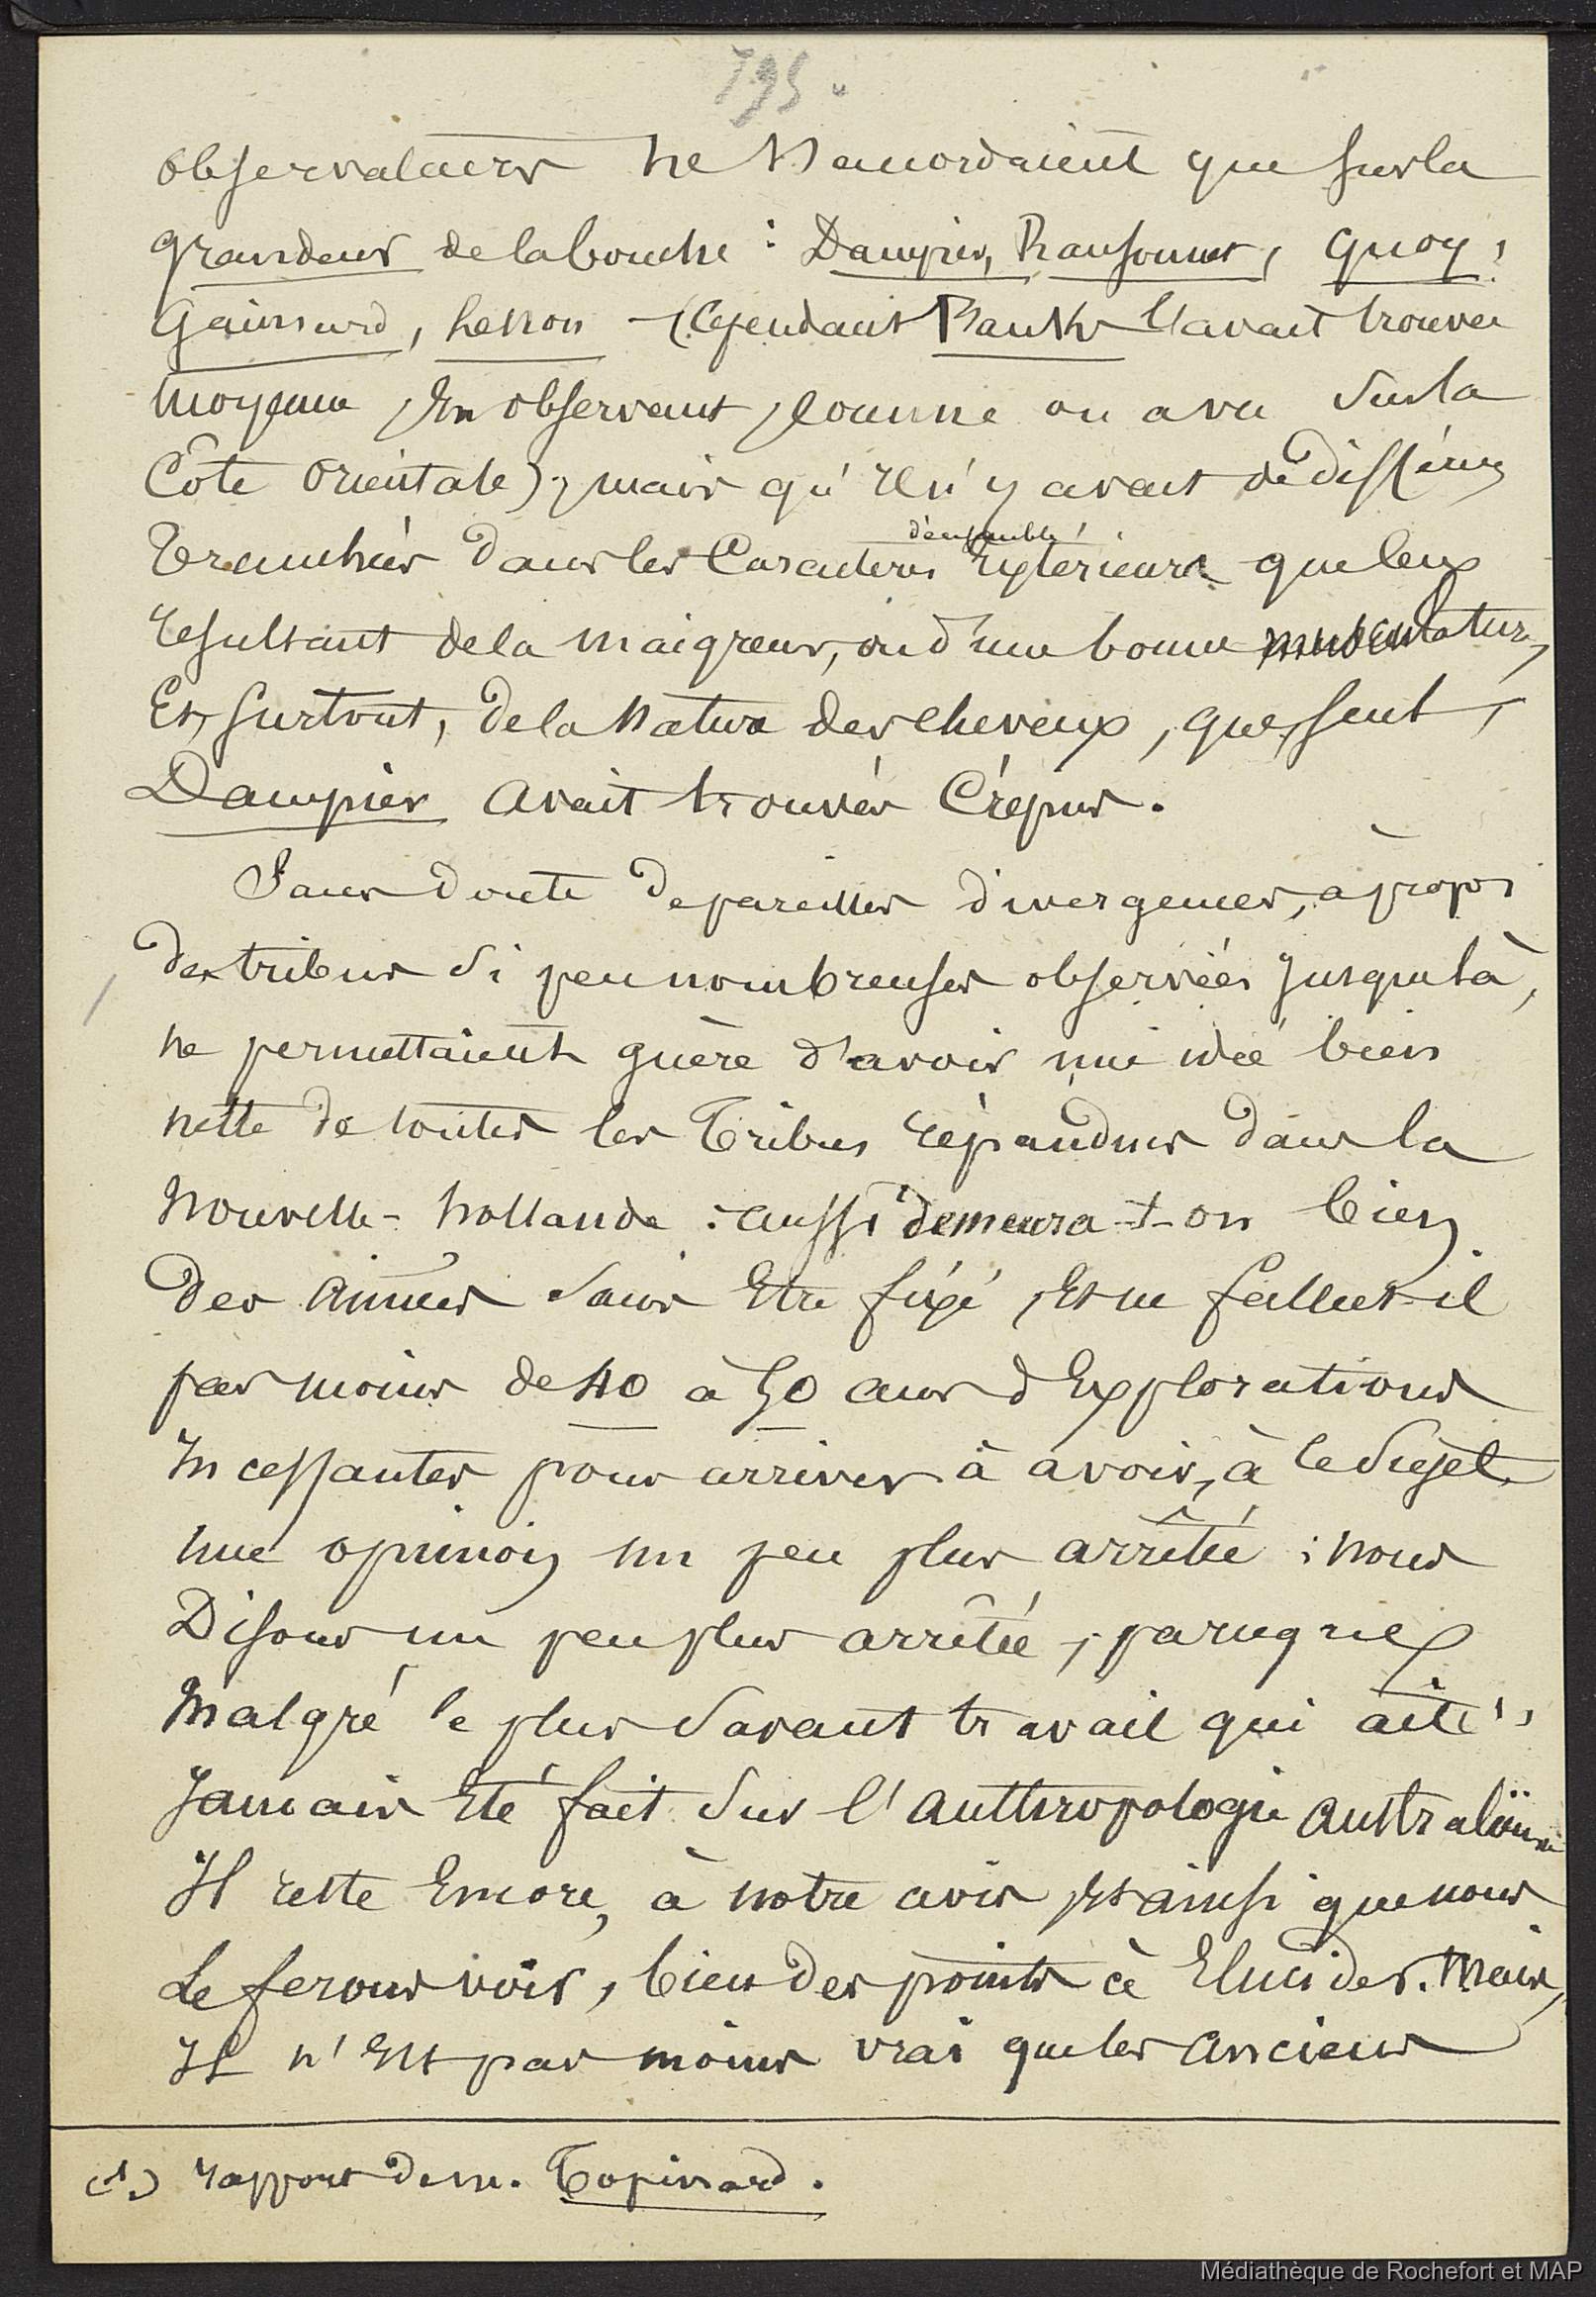 795.
observateurs ne s'accordaient que sur la
grandeur de la bouche : Dampier, Ransonnet, Quoy,
Gaimard, Lesson – (Cependant Banks l'avait trouvée
moyenne, en observant, comme on a vu sur la
Côte orientale); mais qu'il n'y avait de différences
tranchées dans les caractères
d'ensemble
extérieurs que ceux
résultant de la maigreur, ou d'une bonne musculature,
Et, surtout, de la nature des cheveux, que, seul,
Dampier avait trouvés crépus.
Sans doute de pareilles divergences, à propos
des tribus si peu nombreuses observées jusque là,
ne permettaient guère d'avoir une idée bien
nette de toutes les Tribus répandues dans la
Nouvelle-Hollande : aussi demeura-t-on bien
des années sans être fixé, Et ne fallut-il
pas moins de 40 à 50 ans d'Explorations
incessantes pour arriver à avoir, à ce sujet,
une opinion un peu plus arrêtée ; nous
Disons un peu plus arrêtée, parceque,
Malgré le plus savant travail qui ait (1),
Jamais été fait sur l'anthropologie australienne
Il reste Encore, à notre avis, Et ainsi que nous
Le ferons voir, bien des points à Elucider. Mais,
Il n'Est pas moins vrai que les anciens
(1) rapport de M. Topinard.
Médiathèque de Rochefort et MAP